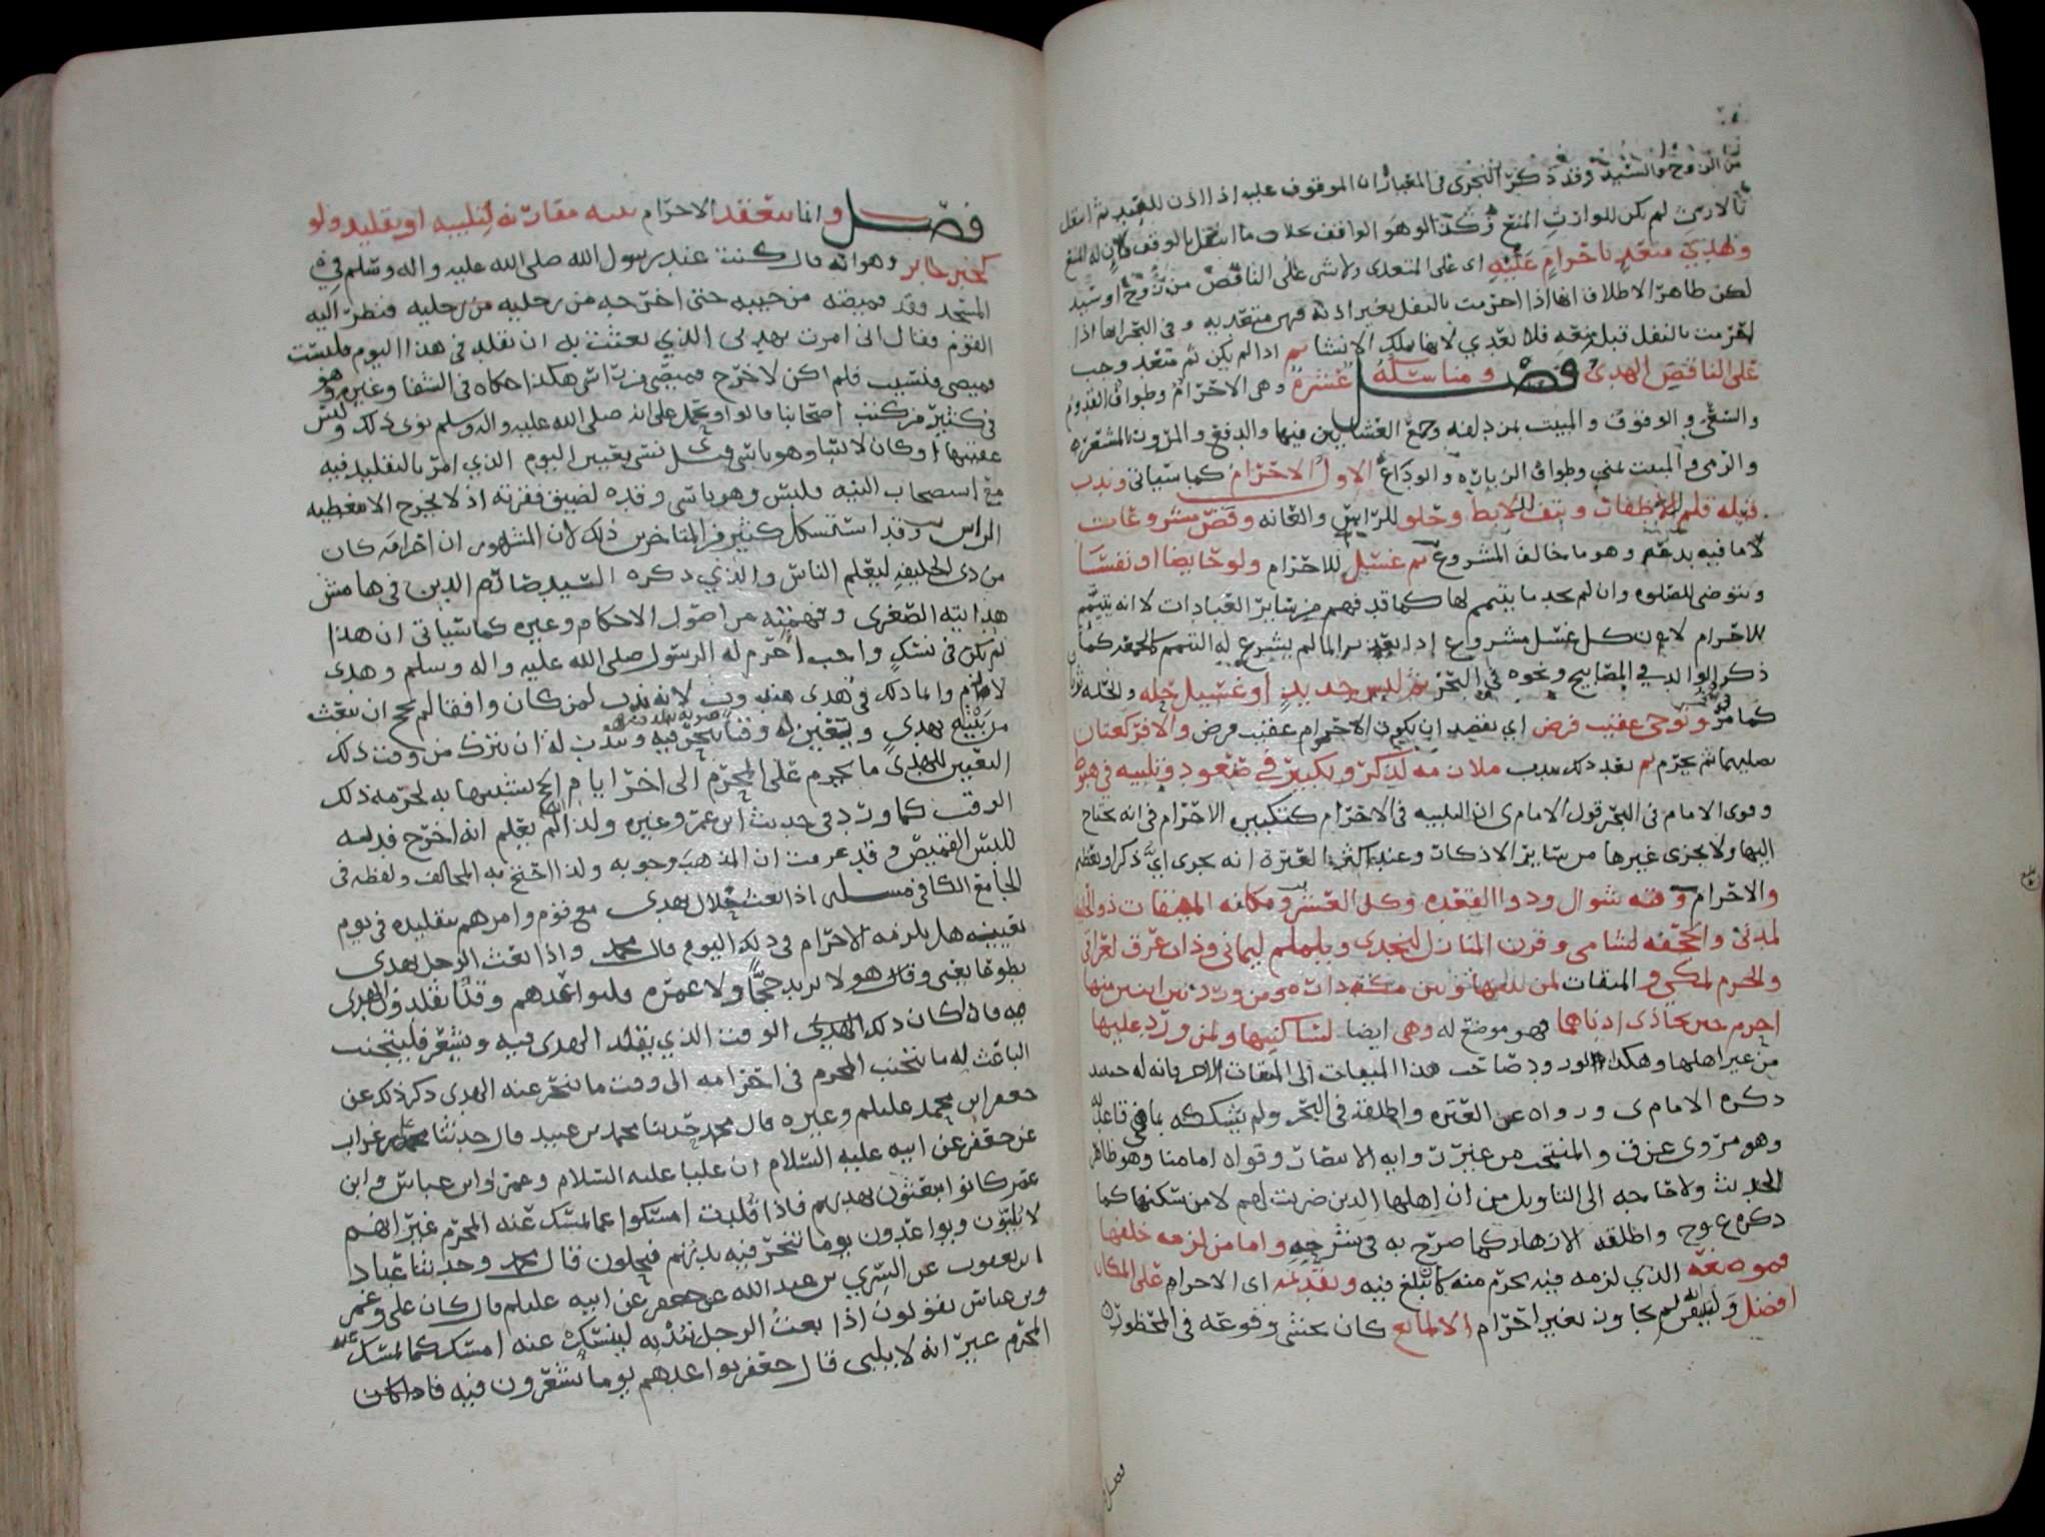 من الزوج والسيد وقد ذكر النجري في المعيار ان الموقوف عليه اذا اذن للعبد ثم انتقل
بالارث لم يكن للوارث المنع وكذا لو هو الواقف بخلاف ما انتقل بالوقف فان له المنع
وهدي متعد باحرام عليه اي على المتعدي ولا شي على الناقض من زوج او سيد
لكن ظاهر الاطلاق انها اذا احرمت بالنفل بغير اذنه فهي متعديه وفي البحر انها اذا
احرمت بالنفل قبل منعه فلا تعدي لانها تملك الانشا ثم اذا لم يكن ثم متعد وجب
على الناقض الهدي فصل ومناسكه عشرة وهي الاحرام وطواف القدوم
والسعي والوقوف والمبيت بمزدلفه وجمع العشايين فيها والدفع والمرور بالمشعر
والرمي والمبيت بمنى وطواف الزياره والوداع الاول الاحرام كما سياتي وندب
قبله قلم للاظفار ونتف للابط وحلق للراس والعانه وقص مشروعات
لا ما فيه بدعه وهو ما خالف المشروع ثم غسل للاحرام ولو حايضا او نفسا
وتتوضى للصلوه وان لم يجد ما يتيمم لها كما قد فهم من ساير العبادات لانه يتيمم
للاحرام لان كل غسل مشروع اذا تعذر الما لم يشرع له التيمم كالجمعه كما
ذكر الوالد في المصابيح ونحوه في البحر ثم لبس جديد او غسيل حله والحله ثوبان
كما مر وتوخي عقيب فرض اي يقصد ان يكون الاحرام عقيب فرض والا فركعتان
يصليهما ثم يحرم ثم بعد ذلك يندب ملازمه لذكر وتكبير في صعود وتلبيه في هبوط
وقوى الامام في البحر قول الامام ى ان التلبيه في الاحرام كتكبير الاحرام في انه يحتاج
اليها ولا يجزي غيرها من ساير الاذكار وعند اكثر العتره انه يجزي اي ذكر او تعظيم
والاحرام وقته شوال وذوا القعده وكل العشر ومكانه الميقات ذو الحليفه
لمدني والجحفه لشامي وقرن المنازل لنجدي ويلملم ليماني وذات عرق لعراقي
والحرم لمكي والميقات لمن بينها وبين مكه داره ومن ورد بين اثنين منها
احرم حين يحاذي ادناهما فهو موضع له وهي ايضا لساكنيها ولمن ورد عليها
من غير اهلها وهكذا لو ورد صاحب هذا الميقات الى الميقات الاخر فانه له حينئذ
ذكره الامام ى ورواه عن العتره واطلقه في البحر ولم يشككه بما في قاعدته
وهو مروي عن ق والمنتخب من غير روايه الانتصار وقواه امامنا وهو ظاهر
الحديث ولا حاجه الى التاويل من ان اهلها الذين ضربت لهم لا من سكنها كما
ذكره ع وح واطلقه الازهار كما صرح به في شرحه واما من لزمه خلفها
فموضعه الذي لزمه فيه يحرم منه كما يبلغ فيه وتقديمه اي الاحرام على المكان
افضل وليفق لم يجاوز بغير احرام الا لمانع كان يخشى وقوعه في المحظور
فصل وانما ينعقد الاحرام بنيه مقارنه لتلبيه او تقليد ولو
كخبر جابر وهو انه قال كنت عند رسول الله صلى الله عليه واله وسلم في
المسجد فقد قميصه من جيبه حتى اخرجه من رجليه فنظر اليه
القوم فقال اني امرت بهديي الذي بعثت به ان تقلد في هذا اليوم فلبست
قميصي ونسيت فلم اكن لاخرج قميصي من راسي هكذا حكاه في الشفا وغيره وهو
في كثير من كتب اصحابنا قالوا ويحمل على انه صلى الله عليه واله وسلم نوى ذلك ولبس
عقيبها او كان لابسا وهو ناسي وقيل نسي تعيين اليوم الذي امر بالتقليد فيه
مع استصحاب النيه ولبس وهو ناسي وقده لضيق فقرته اذ لا يخرج الا مغطيه
الراس وقد استشكل كثير من المتاخرين ذلك لان المشهور ان احرامه كان
من ذي الحليفه ليعلم الناس والذي ذكره السيد صارم الدين في هامش
هدايته الصغرى وفهمته من اصول الاحكام وغيره كما سياتي ان هذا
لم يكن في نسك واجب احرم له الرسول صلى الله عليه واله وسلم وهدي
لازم وانما ذلك في هدي مندوب لانه يندب لمن كان وافقا لم يحج ان يبعث
من بيته بهدي ويتعين له وقتا ينحر فيه ويندب له ان يترك من وقت ذلك
التعيين للهدي ما يحرم على المحرم الى اخر ايام الحج تشبيها به لحرمه ذلك
الوقت كما ورد في حديث ابن عمر وغيره ولذا لم يعلم انه اخرج فديه
للبس القميص وقد عرفت ان المذهب وجوبه ولذا احتج به المخالف ولفظه في
الجامع الكافي مسله اذا بعث حلال بهدي مع قوم وامرهم بتقليده في يوم
بعينه هل يلزمه الاحرام في ذلك اليوم قال محمد واذا بعث الرجل بهدي
تطوعا يعني وقال هو لا يريد حجا ولا عمره فليواعدهم وقتا يقلدون الهدي
فيه فاذا كان ذلك الوقت الذي يقلد الهدي فيه ويشعر فليجتنب
الباعث له ما يجتنب المحرم في احرامه الى وقت ما ينحر عنه الهدي ذكر ذلك عن
جعفر ابن محمد عليلم وغيره قال محمد حدثنا محمد بن عبيد قال حدثنا محمد بن غراب
عن جعفر عن ابيه عليه السلام ان عليا عليه السلام وعمر وابن عباس وابن
عمر كانوا يبعثون بهديهم فاذا قلدت امسكوا عما يمسك عنه المحرم غير انهم
لا يلبون ويواعدون يوما تنحر فيه بدنهم فيحلون قال محمد وحدثنا عباد
ابن يعقوب عن السري بن عبد الله عن جعفر عن ابيه عليلم قال كان علي وعمر
وبن عباس يقولون اذا بعث الرجل بدنه لينسك عنه امسك كما يمسك
المحرم غير انه لا يلبي قال جعفر يواعدهم يوما يشعرون فيه فاذا كان